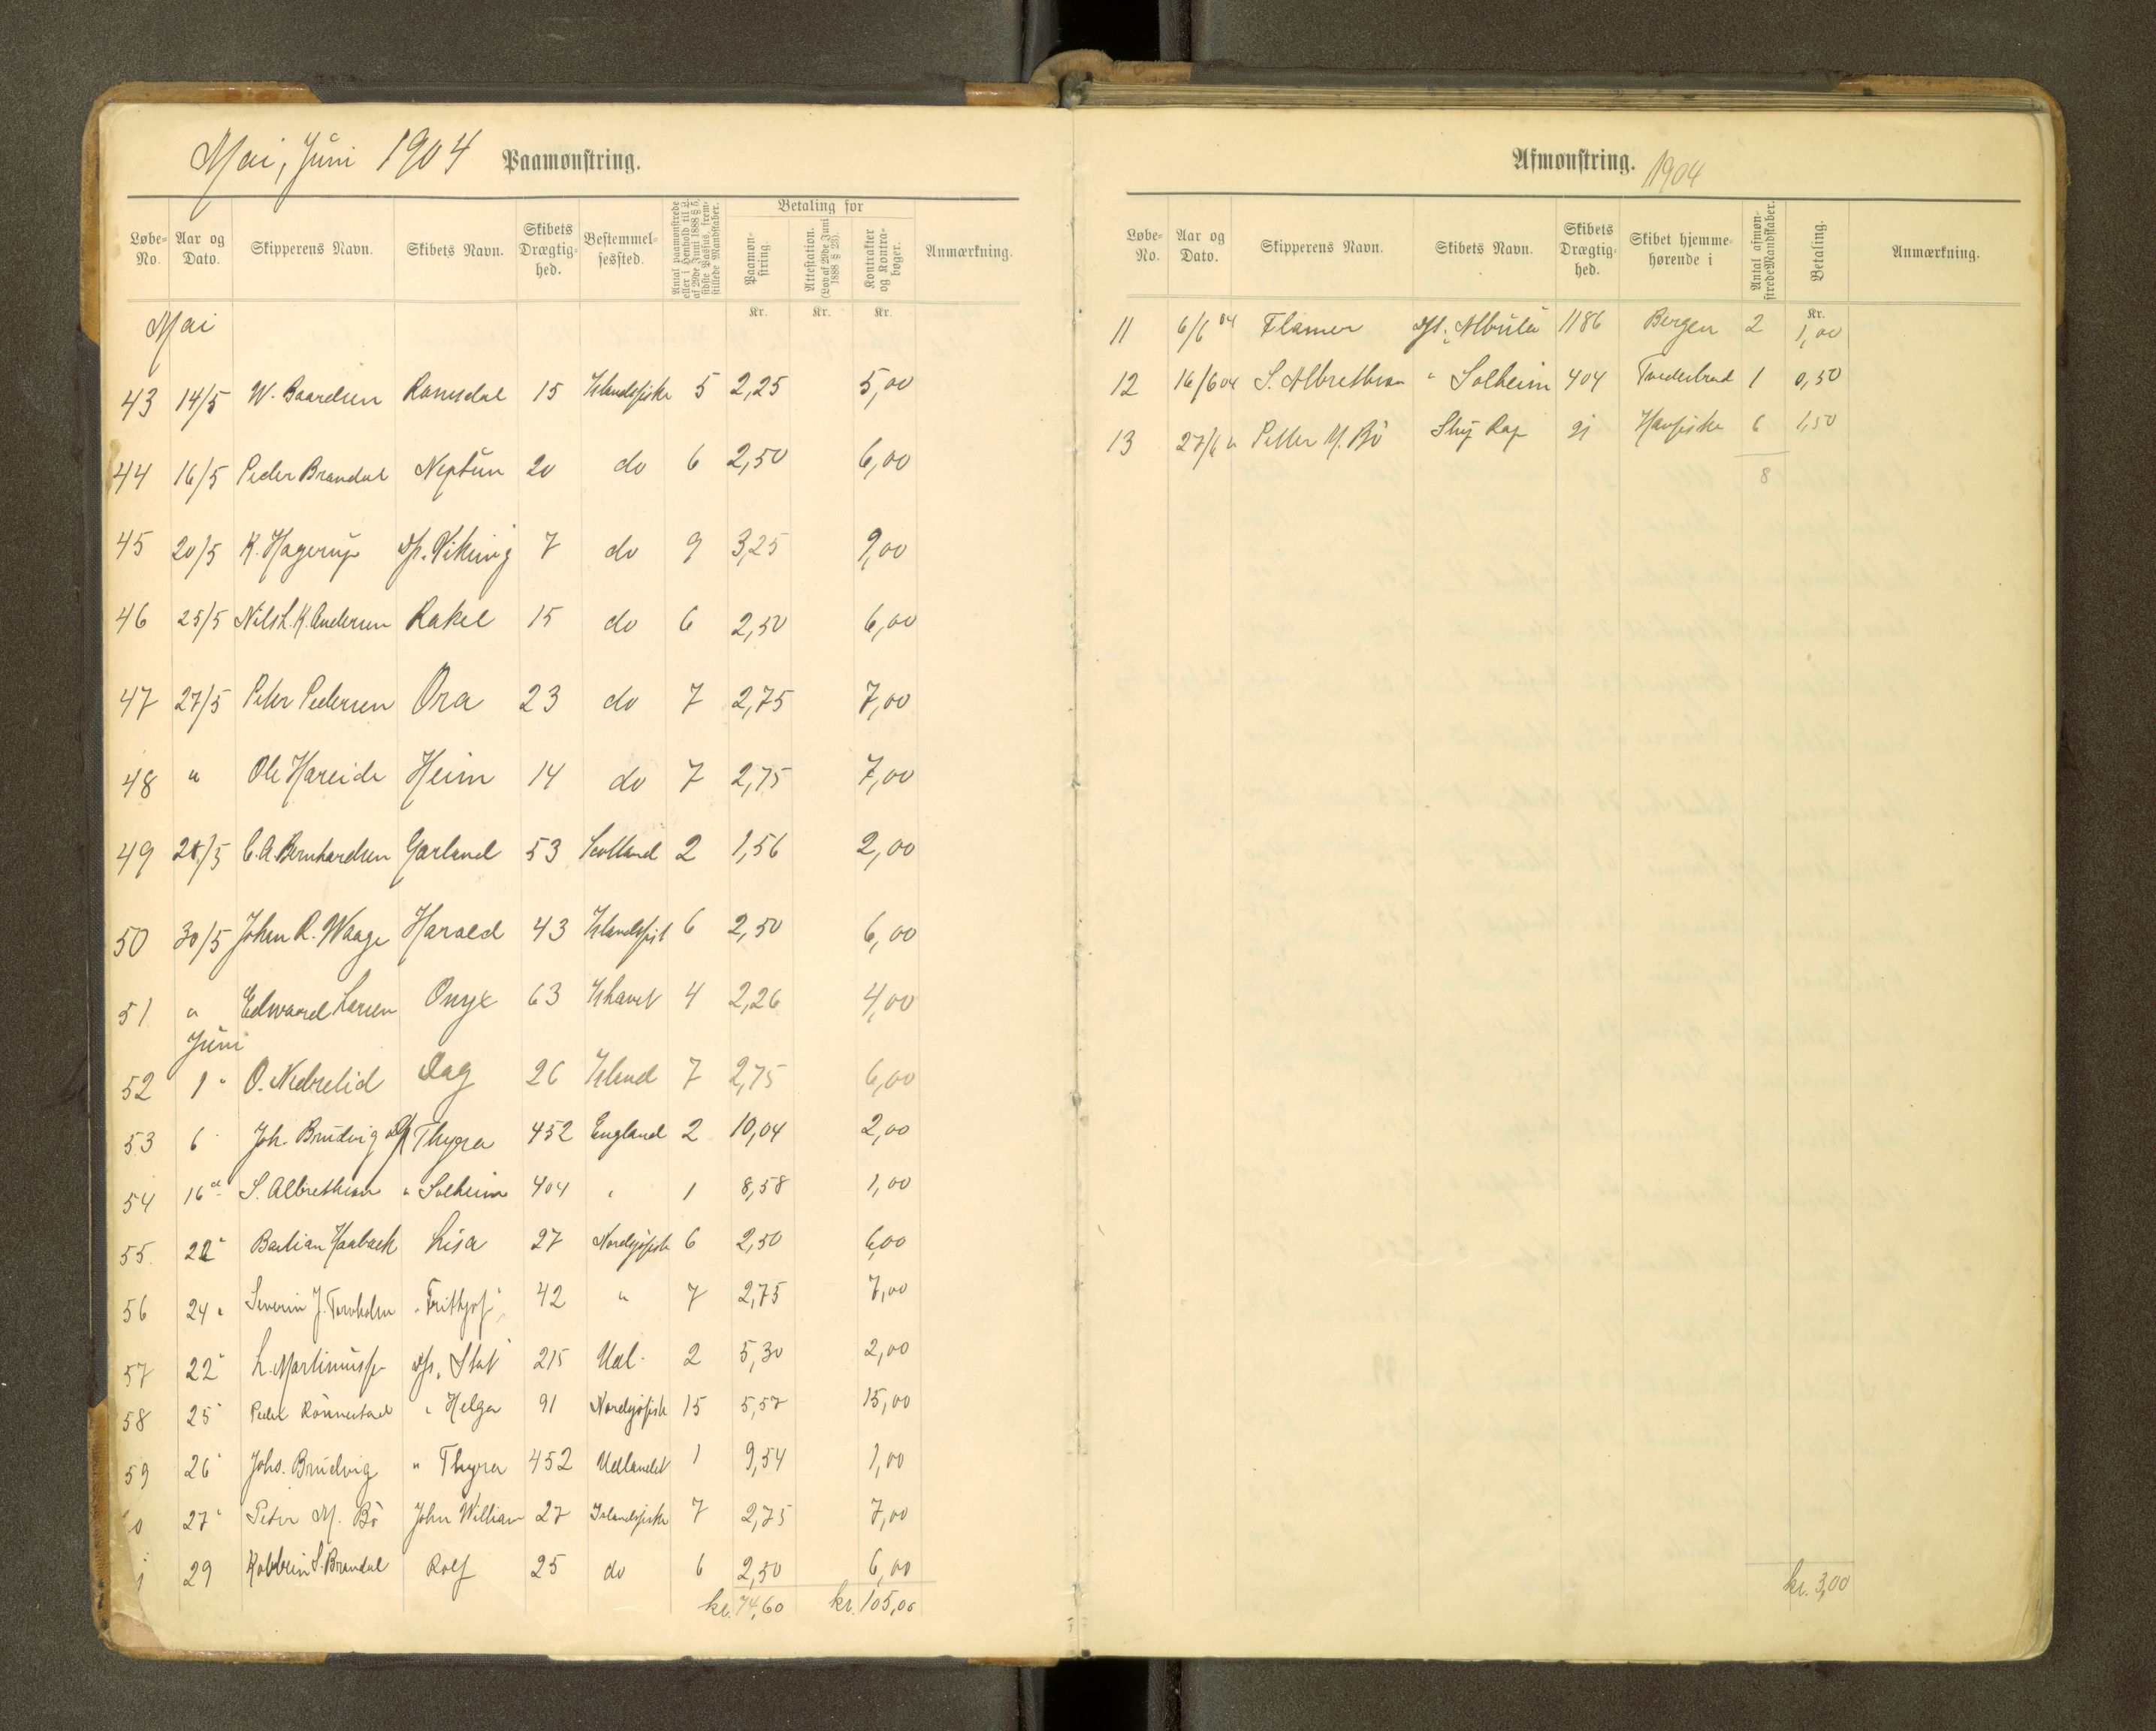 Mai, Juni 1904 Paamønstring.
Løbe-No. Aar og Dato. Skipperens Navn. Skibets Navn. Skibets Drægtighed. Bestemmelsessted. Antal paamønstrede eller i Henhold til L. af 29de Juni 1888 § 5, sidste Passus, fremstillede Mandskaber. Betaling for Paamønstring. Attestation. (Lov af 29de Juni 1888 § 23). Kontrakter og Kontrabøger. Anmærkning.
Kr. Kr. Kr.
Mai
43 14/5 W. Baardsen Romsdal 15 Islandsfiske 5 2,25 5,00
44 16/5 Peder Brandal Neptun 20 do 6 2,50 6,00
45 20/5 K. Hagerup Ds. Viking 7 do 9 3,25 9,00
46 25/5 Nils L. K. Andersen Rakel 15 do 6 2,50 6,00
47 27/5 Peter Pedersen Ora 23 do 7 2,75 7,00
48 " Ole Hareide Heim 14 do 7 2,75 7,00
49 /5 C. A. Bernhardsen Garland 53 Scotland 2 1,56 2,00
50 30/5 Johan R. Waage Harald 43 Islandsfisk 6 2,50 6,00
51 " Edward Larsen Onyx 63 Ishavet 4 2,26 4,00
Juni
52 1 " O. Nedrelid Dag 26 Island 7 2,75 6,00
53 6 Joh. Brudvig Ds Thyra 452 England 2 10,04 2,00
54 16 " S. Albrethsen " Solheim 404 " 1 8,58 1,00
55. 22 " Bastian Haabæk Lisa 27 Nordsjøfisk 6 2,50 6,00
56 24 " Severin J. "Frithjof" 42 " 7 2,75 7,00
57 22 " L. Martinussen Ds. Stat 215 Udl. 2 5,30 2,00
58 25 " Peder Rønnestad " Helga 91 Nordsjøfisk 15 5,57 15,00
59 26 " Johs. Brudvig " Thyra 452 Udlandet 1 9,54 1,00
0 27 " Peter M. Bø John William 27 Islandsfiske 7 2,75 7,00
29 S. Brandal Rolf 25 do 6 2,50 6,00
kr. 74,60 kr. 105,00
Afmønstring. 1904
Løbe-No. Aar og Dato. Skipperens Navn. Skibets Navn. Skibets Drægtighed. Skibet hjemmehørende i Antal afmønstrede Mandskaber. Betaling. Anmærkning.
Kr.
11 6/6 04 Flamer Ds. Albula 1186 Bergen 2 1,00
12 16/6 04 S. Albrethsen " Solheim 404 Tvedestrand 1 0,50
13 27/6 " Petter M. Bø Rap 91 Havfiske 6 1,50
8
kr. 3,00